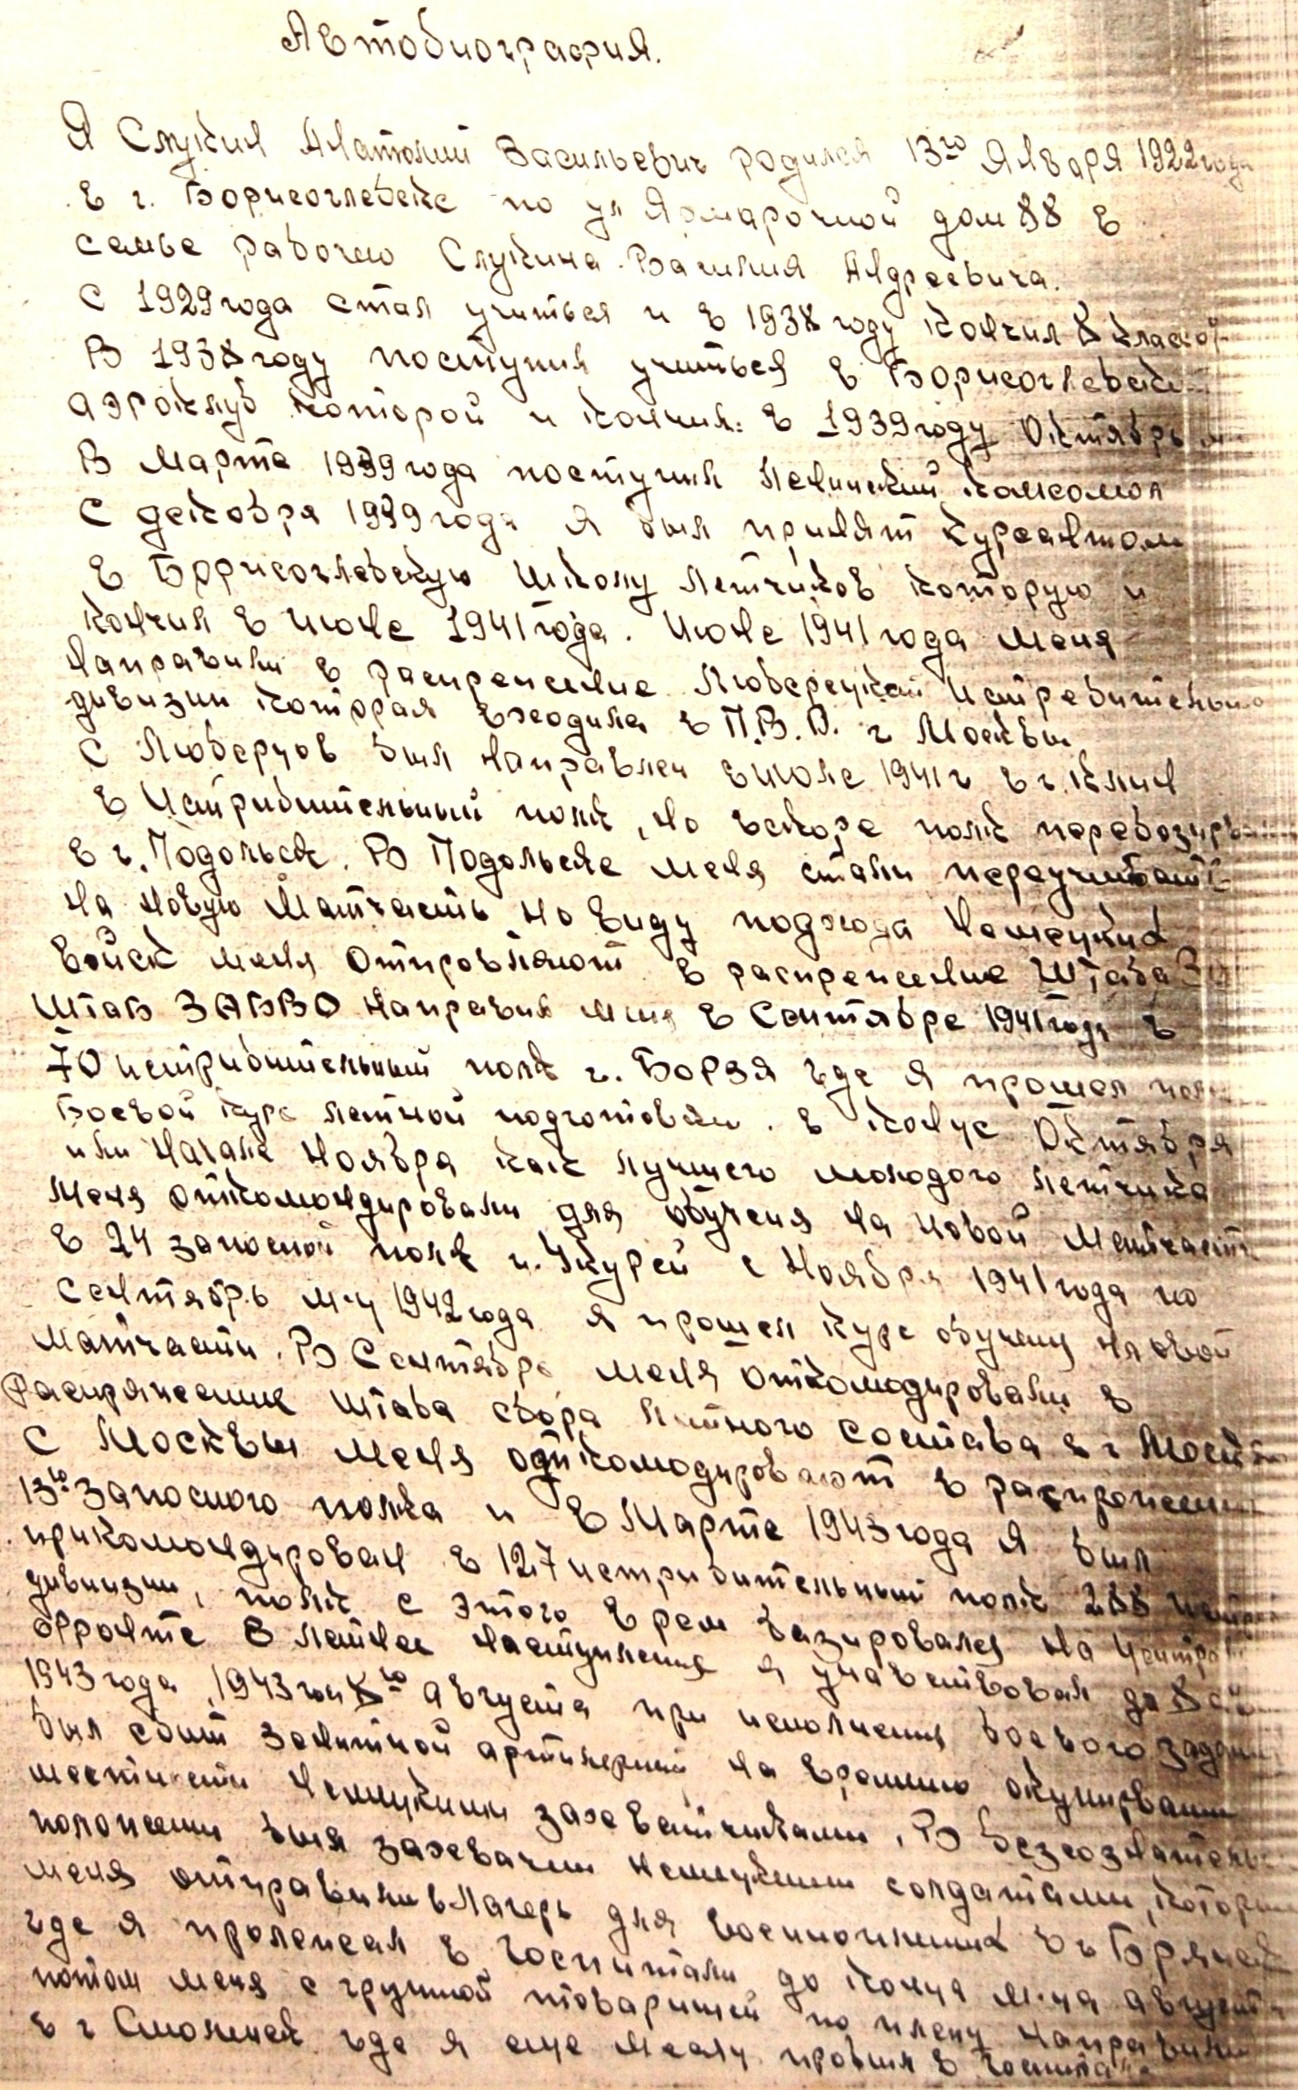 Автобиография.
Я Слукин Анатолий Васильевич родился 13го Января 1922 года
в г. Борисоглебске по ул Ярмарочной дом 88 в
семье рабочего Слукина Василия Андреевича.
С 1929 года стал учиться и в 1938 году кончил 8 классов
В 1938 году поступил учиться в Борисоглебск
аэроклуб которой и кончил в 1939 году Октябрь
В Марте 1939 года поступил Ленинский комсомол
С декобря 1939 года я был принят курсантом
в Борисоглебскую школу летчиков которую и
кончил в июне 1941 года. Июне 1941 года меня
направили в распрежение Люберецкой Истребительно
дивизии которая входила в П.В.О. г Москвы
С Люберцов был направлен в июле 1941 г в г. Клин
в Истрибительный полк, но вскоре полк перебазиров
в г. Подольск. В Подольске меня стали переучивать
на новую Матчасть но виду подхода Немецких
войск меня отпровляют в распрежение Штаба
Штаб ЗАБВО направил меня в Сентябре 1941 года в
70 истрибительный полк г. Борзя где я прошел
Боевой курс летной подготовки. в конце Октября
или Начале Ноября как лучшего молодого летчика
меня откомондировали для обучения на новой Матчасти
в 24 запосной полк г. Укурей с Ноября 1941 года по
Сентябрь м-ц 1942 года я прошел курс обучения на новой
Матчасти. В Сентябре меня откомодировали в
Распряжение Штаба сбора Летного состава в г Моск
С Москвы меня откомодировают в распрожени
13го Запосного полка и в Марте 1943 года я был
прикомондирован в 127 истрибительный полк 288
дивизии, полк с этого врем базировался на Центр
Фронте В летнее наступления я учавствовал до 8
1943 года, 1943 год 8го августа при исполнения боевого задан
был сбит зенитной артилерией на временно окупирован
местности Немецкими захватчиками. В безсознатель
положении был захвачен немецкими солдатами, котор
меня отправили в лагерь для военнопленых в г Брянск
где я пролежал в госпитали до конца м-ца августа
потом меня с группой товарищей по плену направили
в г Смоленск где я еще месяц провыл в